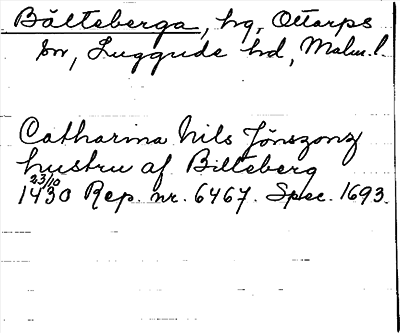 Bälteberga, hg, Ottarps
sn, Luggude hd, Malm. l.
Catharina Nils Jönszonz
hustru af Bilteberg
23/10
1430 Rep. nr. 6467. Spec. 1693.